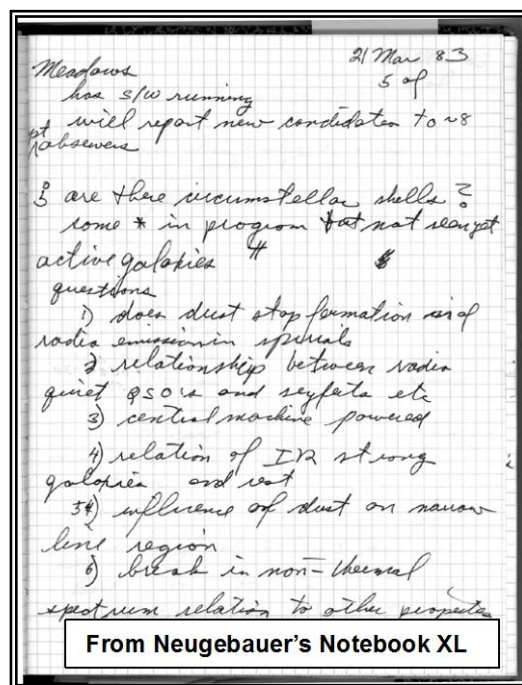 21 Mar 83
5 of
Meadows
has S/W running
will report new candidates to ~8
pt observers
¿ are there circumstellar shells?
some * in program but not seen yet
active galaxies "
questions
1) does dust stop formation of
radio emission in spirals
2 relationship between radio
quiet QSO's and seyferts etc
3) central machine powered
4) relation of IR strong
galaxies and rest
5) influence of dust on narrow
line region
6) break in non-thermal
spectrum relation to other properties
From Neugebauer's Notebook XL